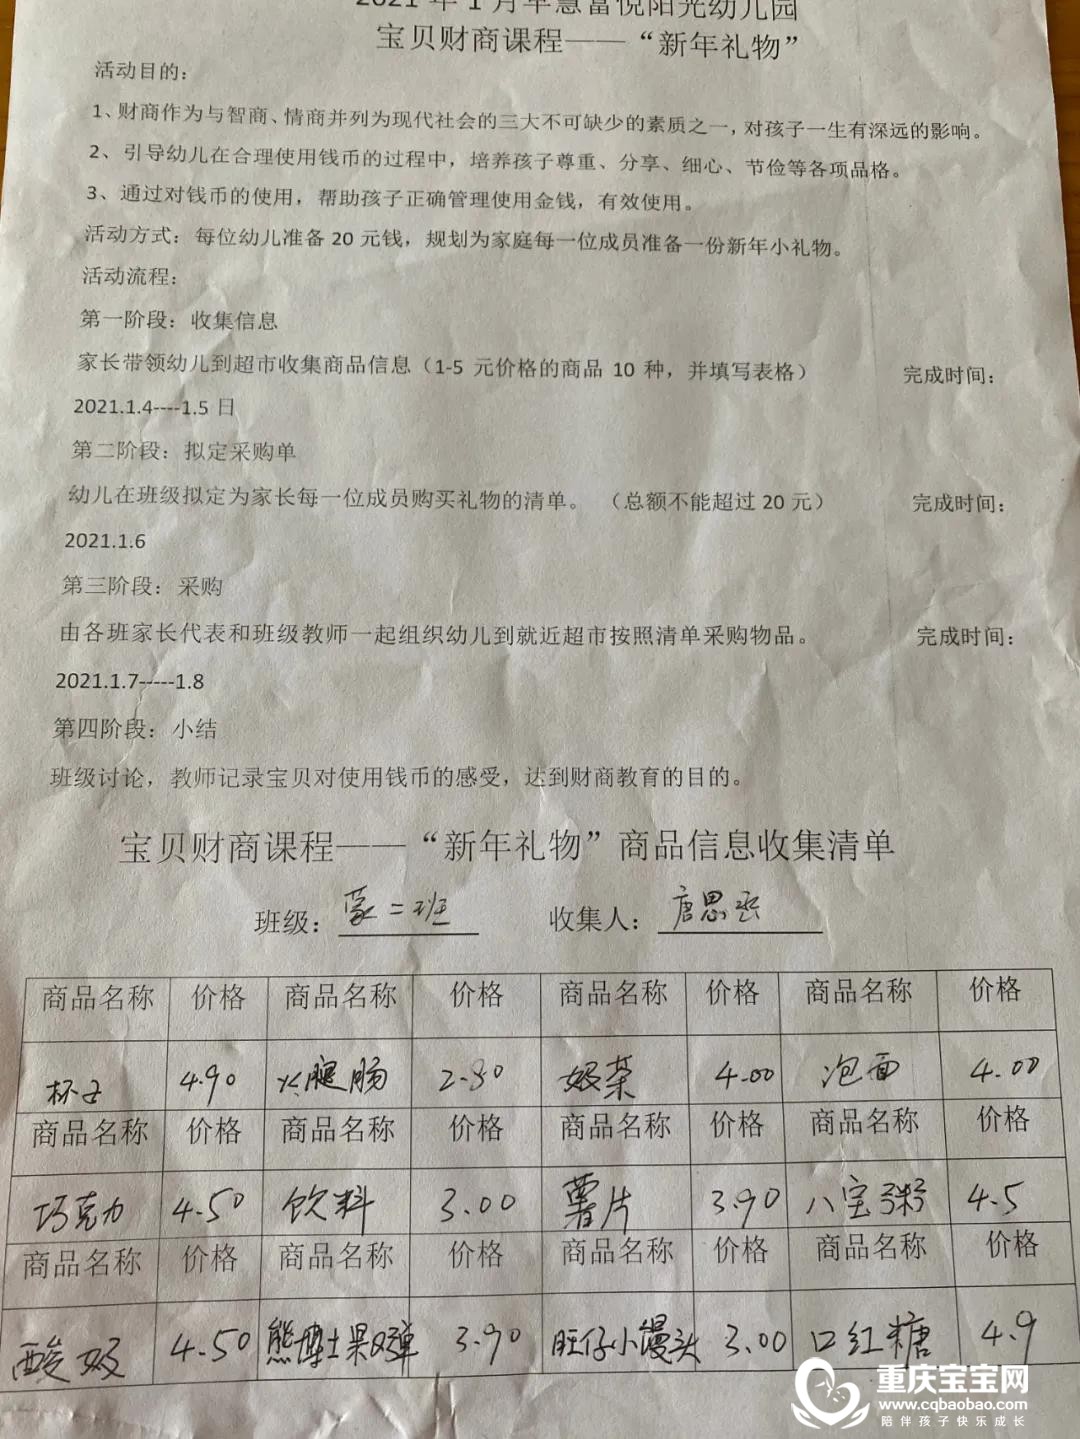 2021 年 1 月早慧富悦阳光幼儿园
宝贝财商课程——“新年礼物”
活动目的：
1、财商作为与智商、情商并列为现代社会的三大不可缺少的素质之一，对孩子一生有深远的影响。
2、引导幼儿在合理使用钱币的过程中，培养孩子尊重、分享、细心、节俭等各项品格。
3、通过对钱币的使用，帮助孩子正确管理使用金钱，有效使用。
活动方式：每位幼儿准备 20 元钱，规划为家庭每一位成员准备一份新年小礼物。
活动流程：
第一阶段：收集信息
家长带领幼儿到超市收集商品信息（1-5 元价格的商品 10 种，并填写表格） 完成时间：
2021.1.4----1.5 日
第二阶段：拟定采购单
幼儿在班级拟定为家长每一位成员购买礼物的清单。 （总额不能超过 20 元） 完成时间：
2021.1.6
第三阶段：采购
由各班家长代表和班级教师一起组织幼儿到就近超市按照清单采购物品。 完成时间：
2021.1.7-----1.8
第四阶段：小结
班级讨论，教师记录宝贝对使用钱币的感受，达到财商教育的目的。
宝贝财商课程——“新年礼物”商品信息收集清单
班级：蒙二班 收集人：唐思丞
商品名称 价格 商品名称 价格 商品名称 价格 商品名称 价格
杯子 4.90 火腿肠 2.80 奶茶 4.00 泡面 4.00
商品名称 价格 商品名称 价格 商品名称 价格 商品名称 价格
巧克力 4.50 饮料 3.00 薯片 3.90 八宝粥 4.5
商品名称 价格 商品名称 价格 商品名称 价格 商品名称 价格
酸奶 4.50 熊博士果汁弹 3.90 旺仔小馒头 3.00 口红糖 4.9
重庆宝宝网
www.cqbaobao.com
陪伴孩子快乐成长